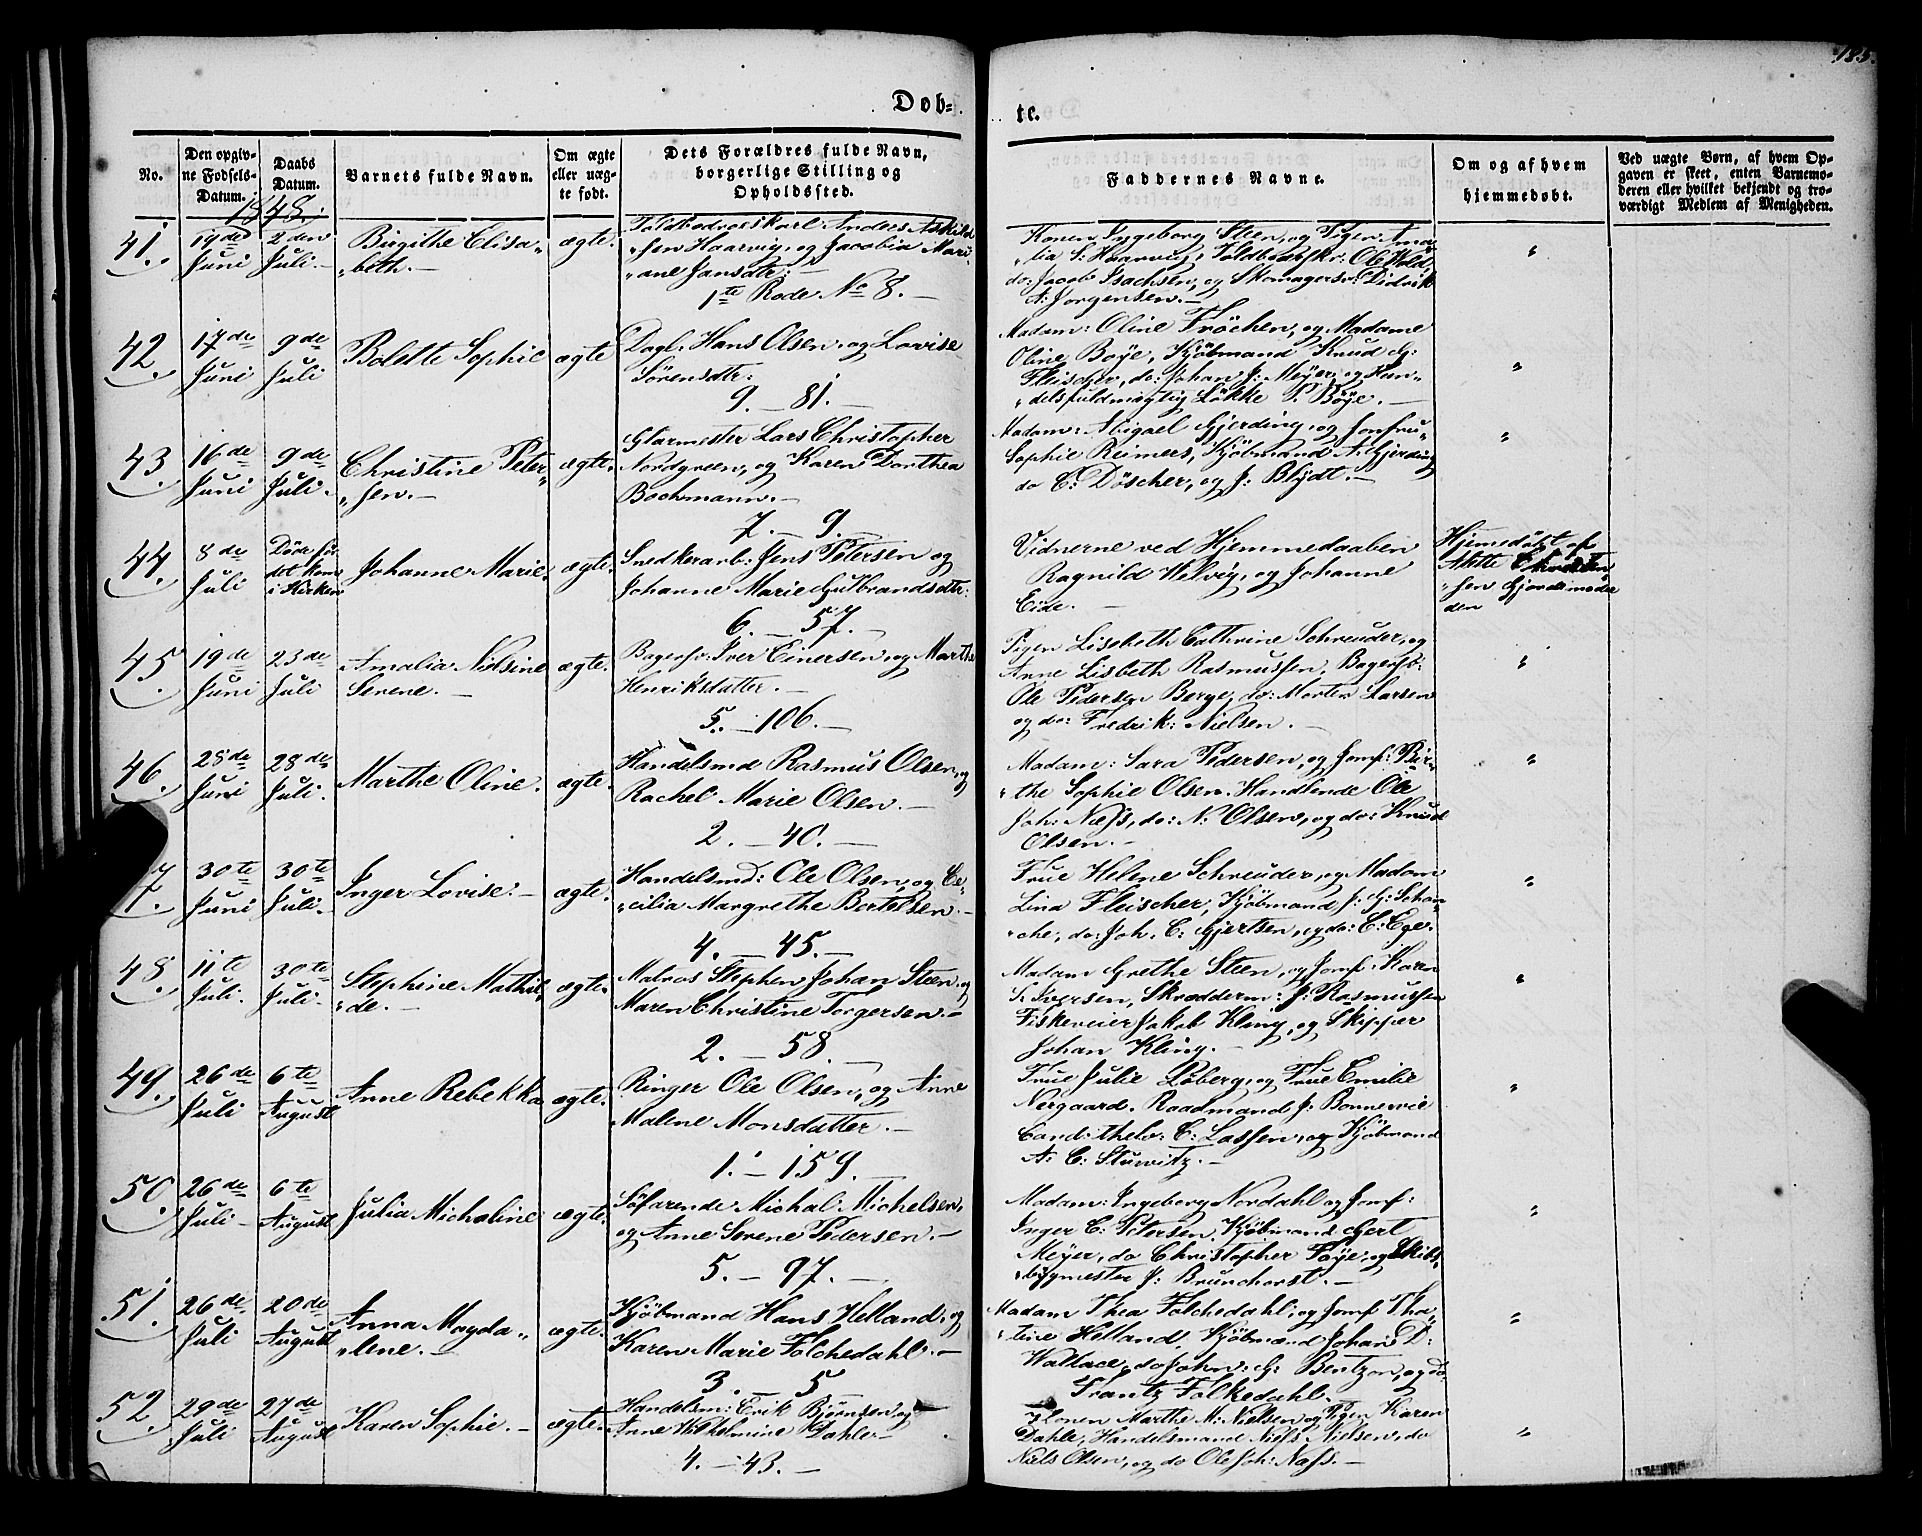 185.
Døb-
te.
No.
Den opgiv-
ne Fødsels-
Datum.
Daabs
Datum.
Barnets fulde Navn.
Om ægte
eller uæg-
te født.
Dets Forældres fulde Navn,
borgerlige Stilling og
Opholdssted.
Faddernes Navne.
Om og af hvem
hjemmedøbt.
Ved uægte Børn, af hvem Op-
gaven er skeet, enten Barnemo-
deren eller hvilket bekjendt og tro-
værdigt Medlem af Menigheden.
1848.
41.
19de
Juni
2den
Juli.
Birgithe Elisa-
beth.
ægte.
Anders Askild-
sen Haarvig, og Jacobia Mari-
ane Jansdtr:
1te Rode No 8.
Konen Ingeborg Steen, og Pigen Ama-
lia S. Haarvig, Ole Wold,
do: Jacob Isachsen, og Skomagersv: Didrik
A: Jørgensen.
"
42.
17de
Juni
9de
Juli
Bolette Sophie
ægte
Dagl: Hans Olsen, og Lovise
Sørensdtr:
9. 81.
Madam: Oline Frøchen, og Madame
Oline Boye, Kjøbmand Knud G:
Fleischer, do: Johan J: Meyer, og Han-
delsfuldmægtig Løkke P. Böye.
"
43.
16de
Juni
9de
Juli.
Christine Peter-
sen.
ægte.
Glarmester Lars Christopher
Nordgreen, og Karen Dorthea
Bochmann.
7. 9.
Madam: Abigael Gjerding, og Jomfru
Sophie Reimers, Kjøbmand A. Gjerding
do C: Döscher, og J: Blydt.
"
44.
8de
Juli
Døde før
det kom
i Kirken
Johanne Marie
ægte.
Snedkerarb: Jens Petersen og
Johanne Marie Gulbrandsdtr:
6. 57.
Vidnerne ved Hjemmedaaben
Ragnild Helvig, og Johanne
Eide.
Hjemedøbt af
Christen-
sen Gjordemoder
den
45.
19de
Juni
23de
Juli
Amalia Nilsine
Serene.
ægte.
Bagersv: Iver Einersen, og Marthe
Henriksdatter.
5. 106.
Pigen Lisebeth Cathrine Schreuder, og
Anne Lisbeth Rasmussen, Bagersv:
Ole Pedersen Berge, do: Morten Larsen
og do: Fredrik: Nielsen.
"
46.
28de
Juni
28de
Juli.
Marthe Oline.
ægte.
Handelsmd Rasmus Olsen, og
Rachel Marie Olsen.
2. 40.
Madam: Sara Pedersen, og Jomf: Bir-
the Sophie Olsen. Handlende Ole
Joh: Næss, do: N: Olsen, og do: Knud
Olsen.
"
7.
30te
Juni
30te
Juli.
Inger Lovise.
ægte.
Handelsmd: Ole Olsen, og Ce-
cilia Margrethe Bertelsen.
4. 45.
Frue Helene Schreuder, og Madam
Lina Fleischer, Kjøbmand J. G: Schan-
che, do: Joh. C: Gjertsen, og do: C: Ege.
"
48.
11te
Juli.
30te
Juli.
Stephine Mathil-
de.
ægte.
Matros Stephen Johan Steen, og
Maren Christine Torgersen.
2. 58.
Madam Grethe Steen, og Jomf: Karen
S: Iversen, Skrædderm: J: Rasmussen
Fiskeveier Jakob Kling, og Skipper
Johan Kling.
"
49.
26de
Juli
6te
August
Anne Rebekka
ægte.
Ringer Ole Olsen, og Anne
Malene Monsdatter.
1. 159.
Frue Julie Løberg, og Frue Emilie
Nergaard. Raadmand J: Bonnevie
Cand: theolo: C: Lassen, og Kjøbmand
A: C: Stuwitz.
"
50.
26de
Juli
6te
August
Julia Michaline
ægte.
Söfarende Michal Michelsen,
og Anne Serene Pedersen.
5. 97.
Madam: Ingeborg Nordahl og Jomf:
Inger C: Petersen, Kjøbmand Gert
Meyer, do Christopher Faye, og Skibs-
bygmester J: Brunchorst.
"
51.
26de
Juli
20de
August
Anna Magda-
lene.
ægte.
Kjøbmand Hans Helland, og
Karen Marie Folchedahl.
3. 5
Madam Thea Folchedahl, og Jomf: Tha-
tine Helland, Kjøbmand Johan D:
Wallace, do John: G: Bentzon, og do
Frantz Falkedahl.
"
52.
29de
Juli
27de
August
Karen Sophie.
ægte.
Handelsm: Erik Bjørnsen, og
Anne Wilhelmine Dahle
4. 43.
Konen Marthe M: Nielsen, og Pigen Karen
Dahle, Handelsmand Niels Nielsen, do
Niels Olsen, og do Ole Joh: Næss.
"